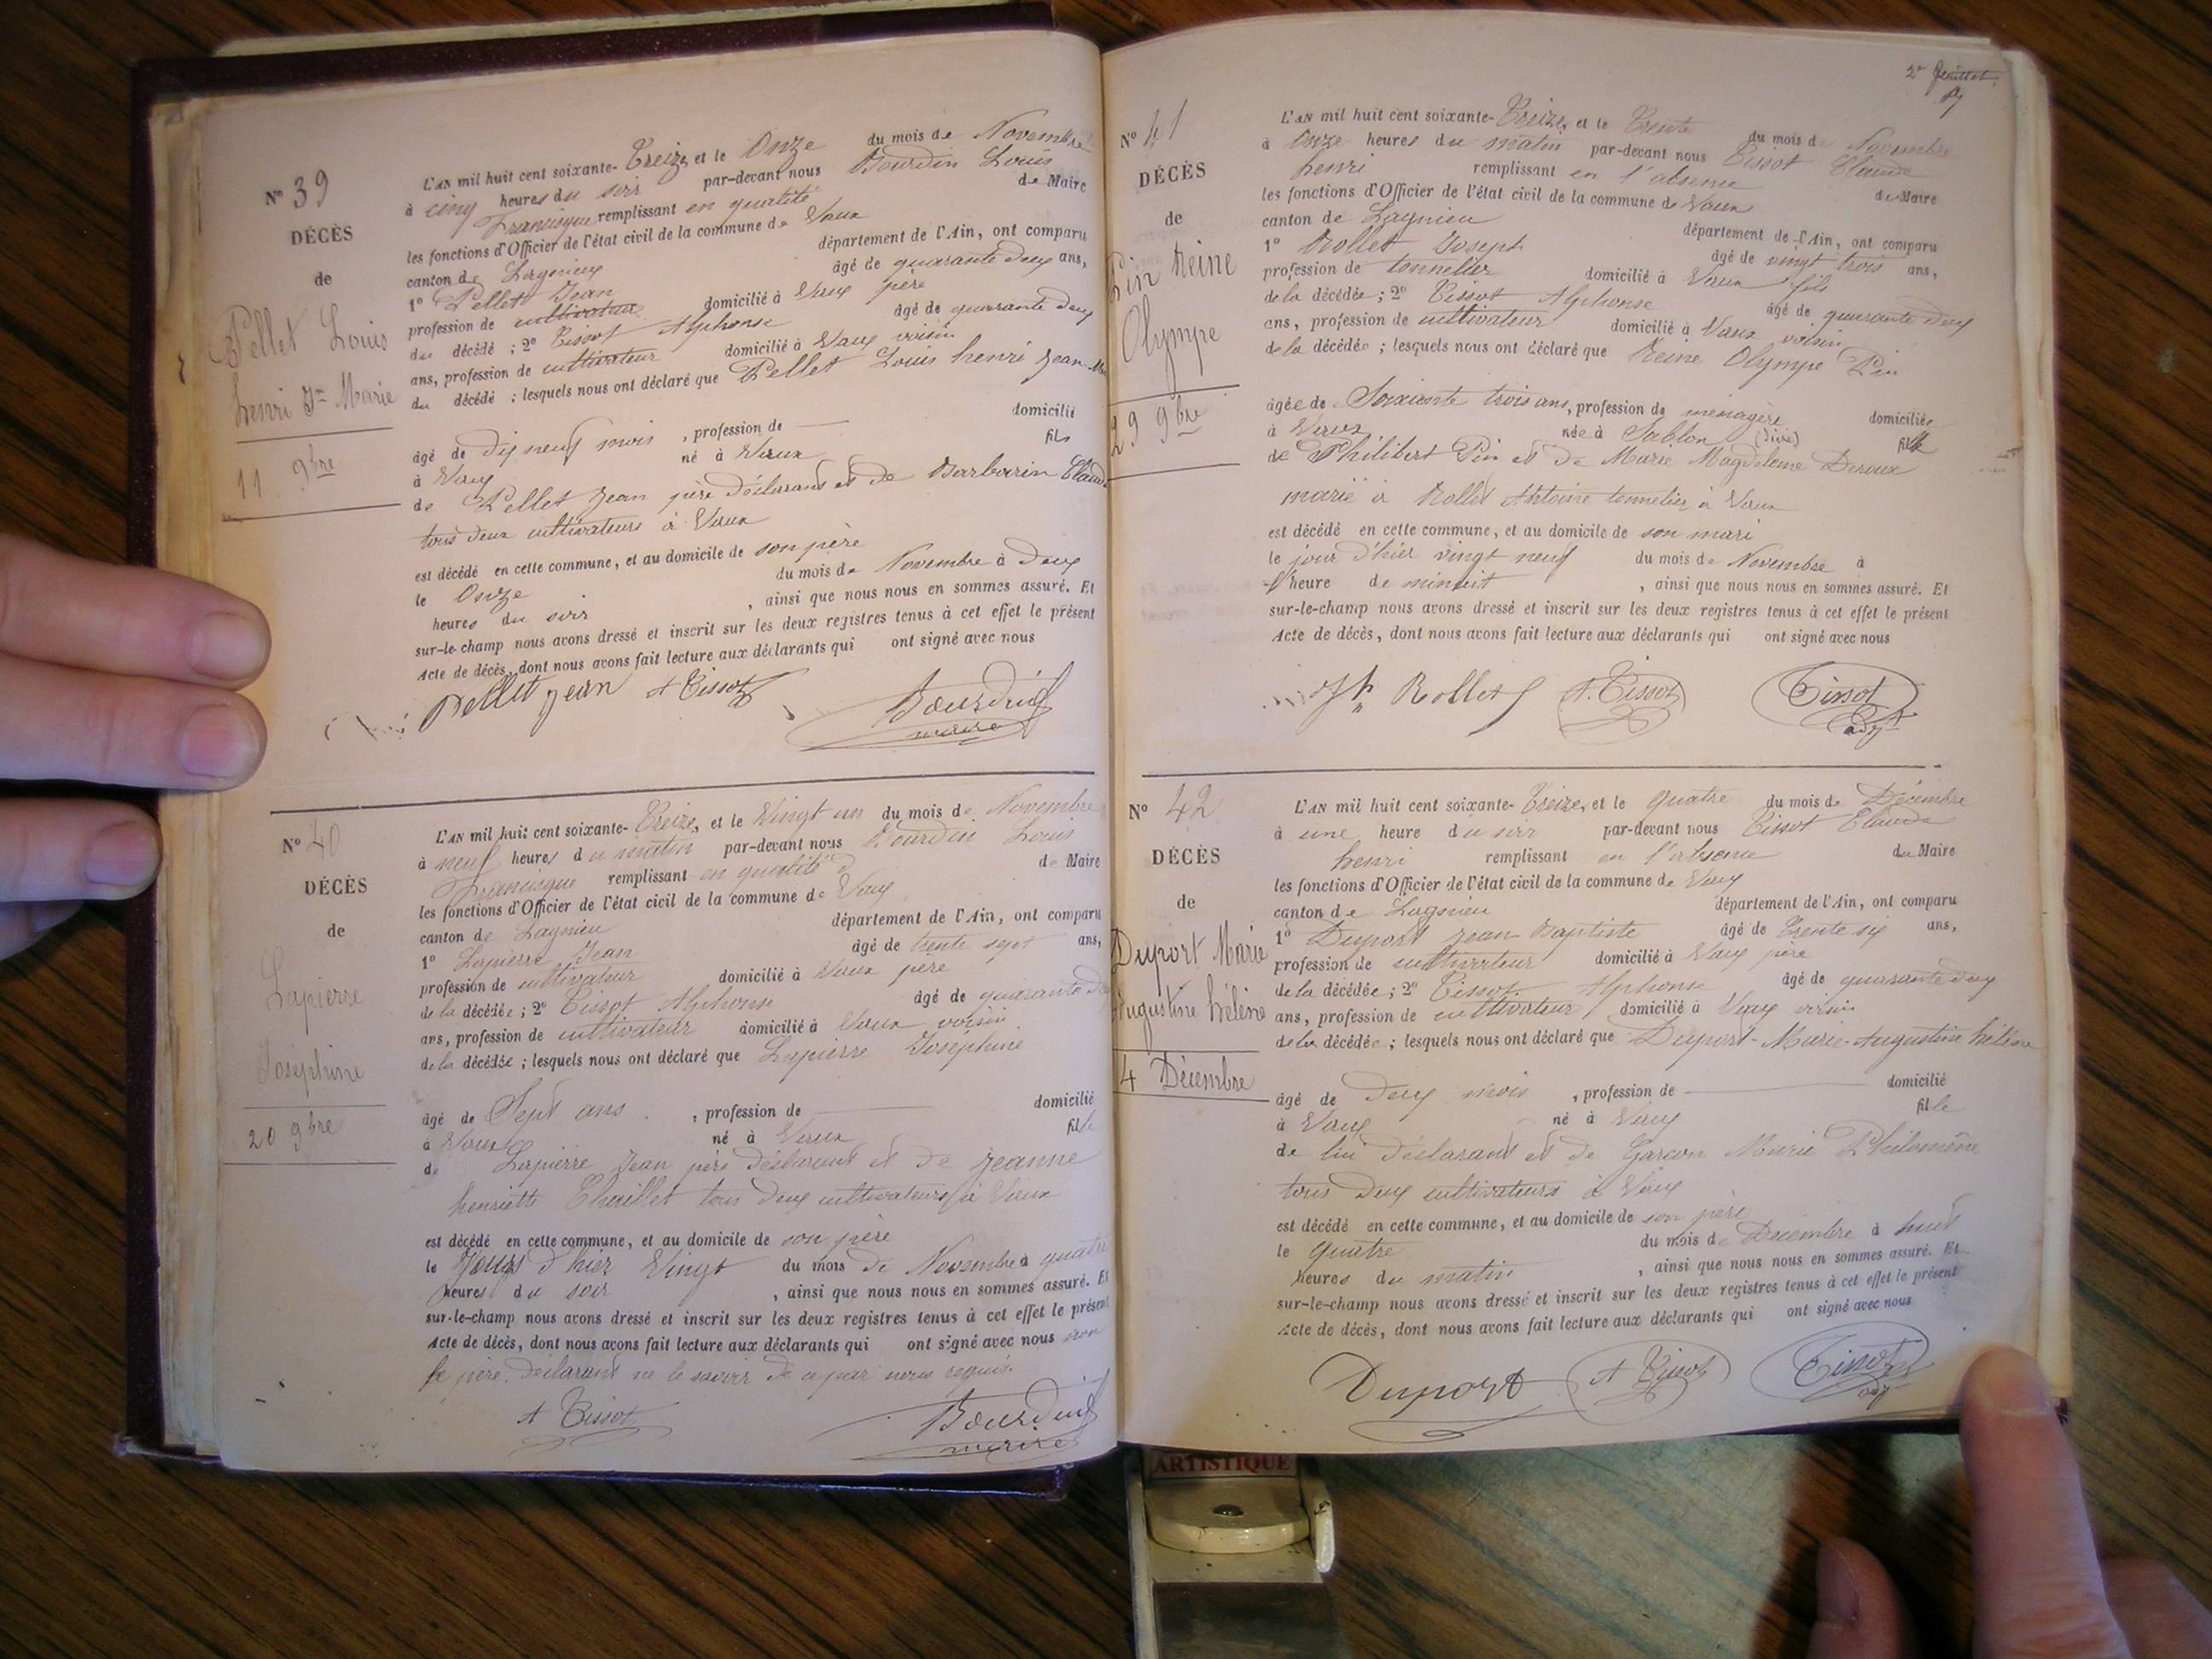 N° 39
DÉCÈS
de
Pellet Louis
henri Jn Marie
11 9bre
L'AN mil huit cent soixante-Treize, et le Onze du mois de Novembre
à cinq heures du soir par-devant nous Bourdin Louis
Francisque remplissant en qualité de Maire
les fonctions d'Officier de l'état civil de la commune de Vaux
canton de Lagnieu département de l'Ain, ont comparu
1° Pellet Jean âgé de quarante deux ans,
profession de cultivateur domicilié à Vaux père
du décédé ; 2° Tissot Alphonse âgé de quarante deux
ans, profession de cultivateur domicilié à Vaux voisin
du décédé ; lesquels nous ont déclaré que Pellet Louis henri Jean
âgé de dix neuf mois , profession de — domicilié
à Vaux né à Vaux fils
de Pellet Jean père déclarant et de Barbarin
tous deux cultivateurs à Vaux
est décédé en cette commune, et au domicile de son père
le Onze du mois de Novembre à Deux
heures du soir , ainsi que nous nous en sommes assuré. Et
sur-le-champ nous avons dressé et inscrit sur les deux registres tenus à cet effet le présent
Acte de décès, dont nous avons fait lecture aux déclarants qui ont signé avec nous
Pellet Jean A Tissot Bourdin
maire
N° 40
DÉCÈS
de
Lapierre
Joséphine
20 9bre
L'AN mil huit cent soixante-Treize, et le Vingt un du mois de Novembre
à neuf heures du matin par-devant nous Bourdin Louis
Francisque remplissant en qualité d de Maire
les fonctions d'Officier de l'état civil de la commune de Vaux
canton de Lagnieu département de l'Ain, ont comparu
1° Lapierre Jean âgé de trente sept ans,
profession de cultivateur domicilié à Vaux père
de la décédée ; 2° Tissot Alphonse âgé de quarante
ans, profession de cultivateur domicilié à Vaux voisin
de la décédée ; lesquels nous ont déclaré que Lapierre Joséphine
âgé de Sept ans , profession de — domicilié
à Vaux né à Vaux fille
de Lapierre Jean père déclarant et de Jeanne
henriette Chaillet tous deux cultivateurs à Vaux
est décédé en cette commune, et au domicile de son père
le Jour d'hier Vingt du mois de Novembre à quatre
heures du soir , ainsi que nous nous en sommes assuré. Et
sur-le-champ nous avons dressé et inscrit sur les deux registres tenus à cet effet le présent
Acte de décès, dont nous avons fait lecture aux déclarants qui ont signé avec nous non
le père déclarant ne le savoir de ce par nous requis.
A Tissot Bourdin
maire
2e feuillet
N° 41
DÉCÈS
de
Pin Reine
Olympe
29 9bre
L'AN mil huit cent soixante-Treize, et le Trente du mois de Novembre
à Onze heures du matin par-devant nous Tissot Claude
henri remplissant en l'absence du Maire
les fonctions d'Officier de l'état civil de la commune de Vaux
canton de Lagnieu département de l'Ain, ont comparu
1° Rollet Joseph âgé de vingt trois ans,
profession de tonnelier domicilié à Vaux fils
de la décédée ; 2° Tissot Alphonse âgé de quarante deux
ans, profession de cultivateur domicilié à Vaux voisin
de la décédée ; lesquels nous ont déclaré que Reine Olympe Pin
âgée de Soixante trois ans, profession de ménagère domiciliée
à Vaux née à Sablon (Isère) fille
de Philibert Pin et de Marie Magdeleine
marié à Rollet Antoine tonnelier à Vaux
est décédé en cette commune, et au domicile de son mari
le jour d'hier vingt neuf du mois de Novembre à
l'heure de minuit , ainsi que nous nous en sommes assuré. Et
sur-le-champ nous avons dressé et inscrit sur les deux registres tenus à cet effet le présent
Acte de décès, dont nous avons fait lecture aux déclarants qui ont signé avec nous
Jh Rollet A. Tissot Tissot
adjt
N° 42
DÉCÈS
de
Duport Marie
Augustine hélène
4 Décembre
L'AN mil huit cent soixante-Treize, et le quatre du mois de Décembre
à une heure du soir par-devant nous Tissot Claude
henri remplissant en l'absence du Maire
les fonctions d'Officier de l'état civil de la commune de Vaux
canton de Lagnieu département de l'Ain, ont comparu
1° Duport Jean Baptiste âgé de Trente six ans,
profession de cultivateur domicilié à Vaux père
de la décédée ; 2° Tissot Alphonse âgé de quarante deux
ans, profession de cultivateur domicilié à Vaux voisin
de la décédée ; lesquels nous ont déclaré que Duport-Marie-Augustine hélène
âgé de Deux mois , profession de — domicilié
à Vaux né à Vaux fille
de lui déclarant et de Garcon Marie Philomène
tous deux cultivateurs à Vaux
est décédé en cette commune, et au domicile de son père
le quatre du mois de Décembre à huit
heures du matin , ainsi que nous nous en sommes assuré. Et
sur-le-champ nous avons dressé et inscrit sur les deux registres tenus à cet effet le présent
Acte de décès, dont nous avons fait lecture aux déclarants qui ont signé avec nous
Duport A Tissot Tissot
adjt
ARTISTIQUE